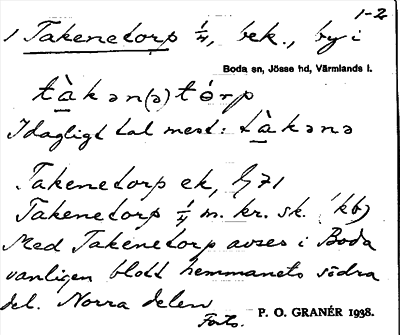 1-2
1 Takenetorp 1/4, bek., by i
Boda sn, Jösse hd, Värmlands l.
tàkən(ə)tórp
I dagligt tal mest: tàkənə
Takenetorp ek, G 71
Takenetorp 1/4 m. kr. sk. (kb)
Med Takenetorp avses i Boda
vanligen blott hemmanets södra
del. Norra delen
Forts.
P. O. GRANÉR 1938.